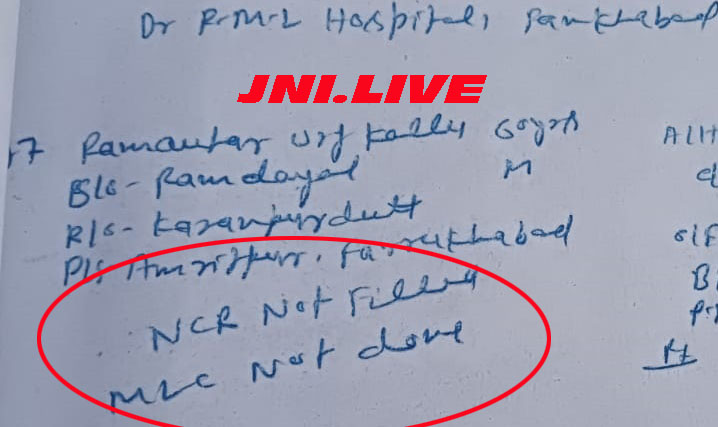 Dr R.M.L Hospital, Farrukhabad
JNI.LIVE
17 Ramautar Urf Kallu 60yrs
S/o - Ramdayal M
R/o - Karanpur dutt
P/s Amritpur, Farrukhabad
NCR Not Filled
MLC Not done